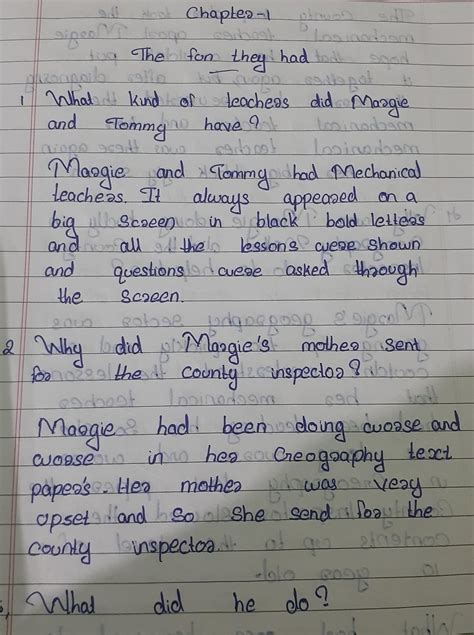 Chapter-1
The fon they had
1 What kind of teachers did Margie
and Tommy have?
Margie and Tommy had Mechanical
teachers. It always appeared on a
big screen in black bold letters
and all the lessons were shown
and questions were asked through
the screen.
2 Why did Margie's mother sent
for the county inspector?
Margie had been doing worse and
worse in her Geography text
papers. Her mother was very
upset and so she send for the
county inspector.
What did he do?